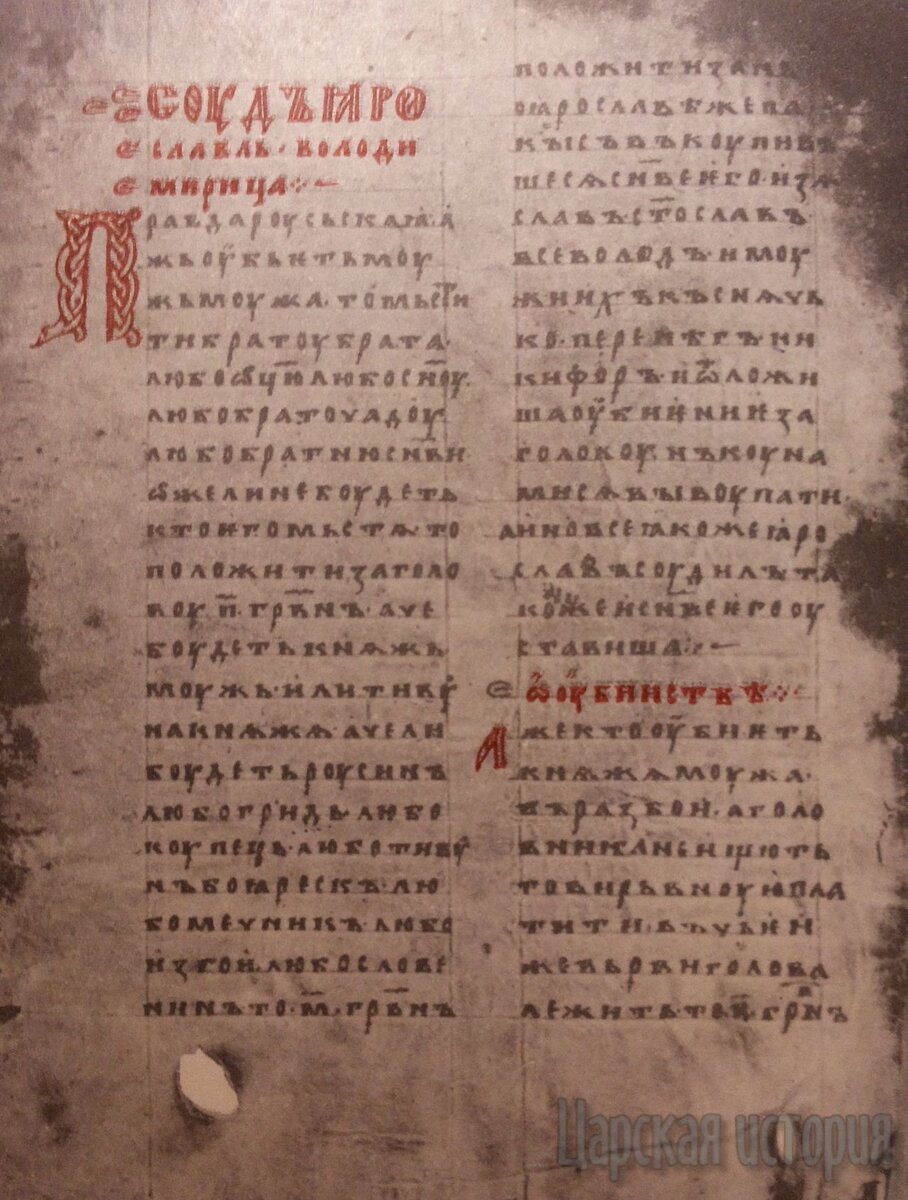 СОУДЪ ꙖРО
СЛАВЛЬ · ВОЛОДИ
МИРИЦА
Правда роусьскаꙗ · а
жь оубьѥть моу
жь моужа · то мьсти
ти братоу брата ·
любо ѡц҃ю любо сн҃оу ·
любо братоучадоу ·
любо братню сн҃ви
ѡже ли не боудеть
кто ѥго мьстѧ · то
положити за голо
воу · п҃ · грв҃нъ · аче
боудеть кнѧжь
моужь · или тивоу
на кнѧжѧ · аче ли
боудеть роусинъ
любо гридь · любо
коупець · любо тивоу
нъ боꙗрескъ · лю
бо мечникъ · любо
изгои · любо слове
нинъ то · м҃ · грв҃нъ
положити за нь
по ꙗрославѣ же па
кы съвъкоупивъ
шесѧ сн҃ве ѥго · изѧ
славъ · ст҃ославъ ·
всеволодъ · и моу
жи ихъ · къснѧчь
ко · перенѣгъ · ни
кифоръ · и ѿложи
ша оубиѥниѥ за
головоу · нъ коуна
ми сѧ выкоупати ·
а ино все ꙗкоже ꙗро
славъ соудилъ · та
коже и сн҃ве ѥго оу
ставиша
ѡ оубииствѣ
Аже кто оубиѥть
кнѧжѧ моужа ·
въ разбои · а голо
вника не ищють
то вирьвноую пла
тити · въ чьѥи
же вьрви голова
лежить · то п҃ · грв҃нъ
Царская история